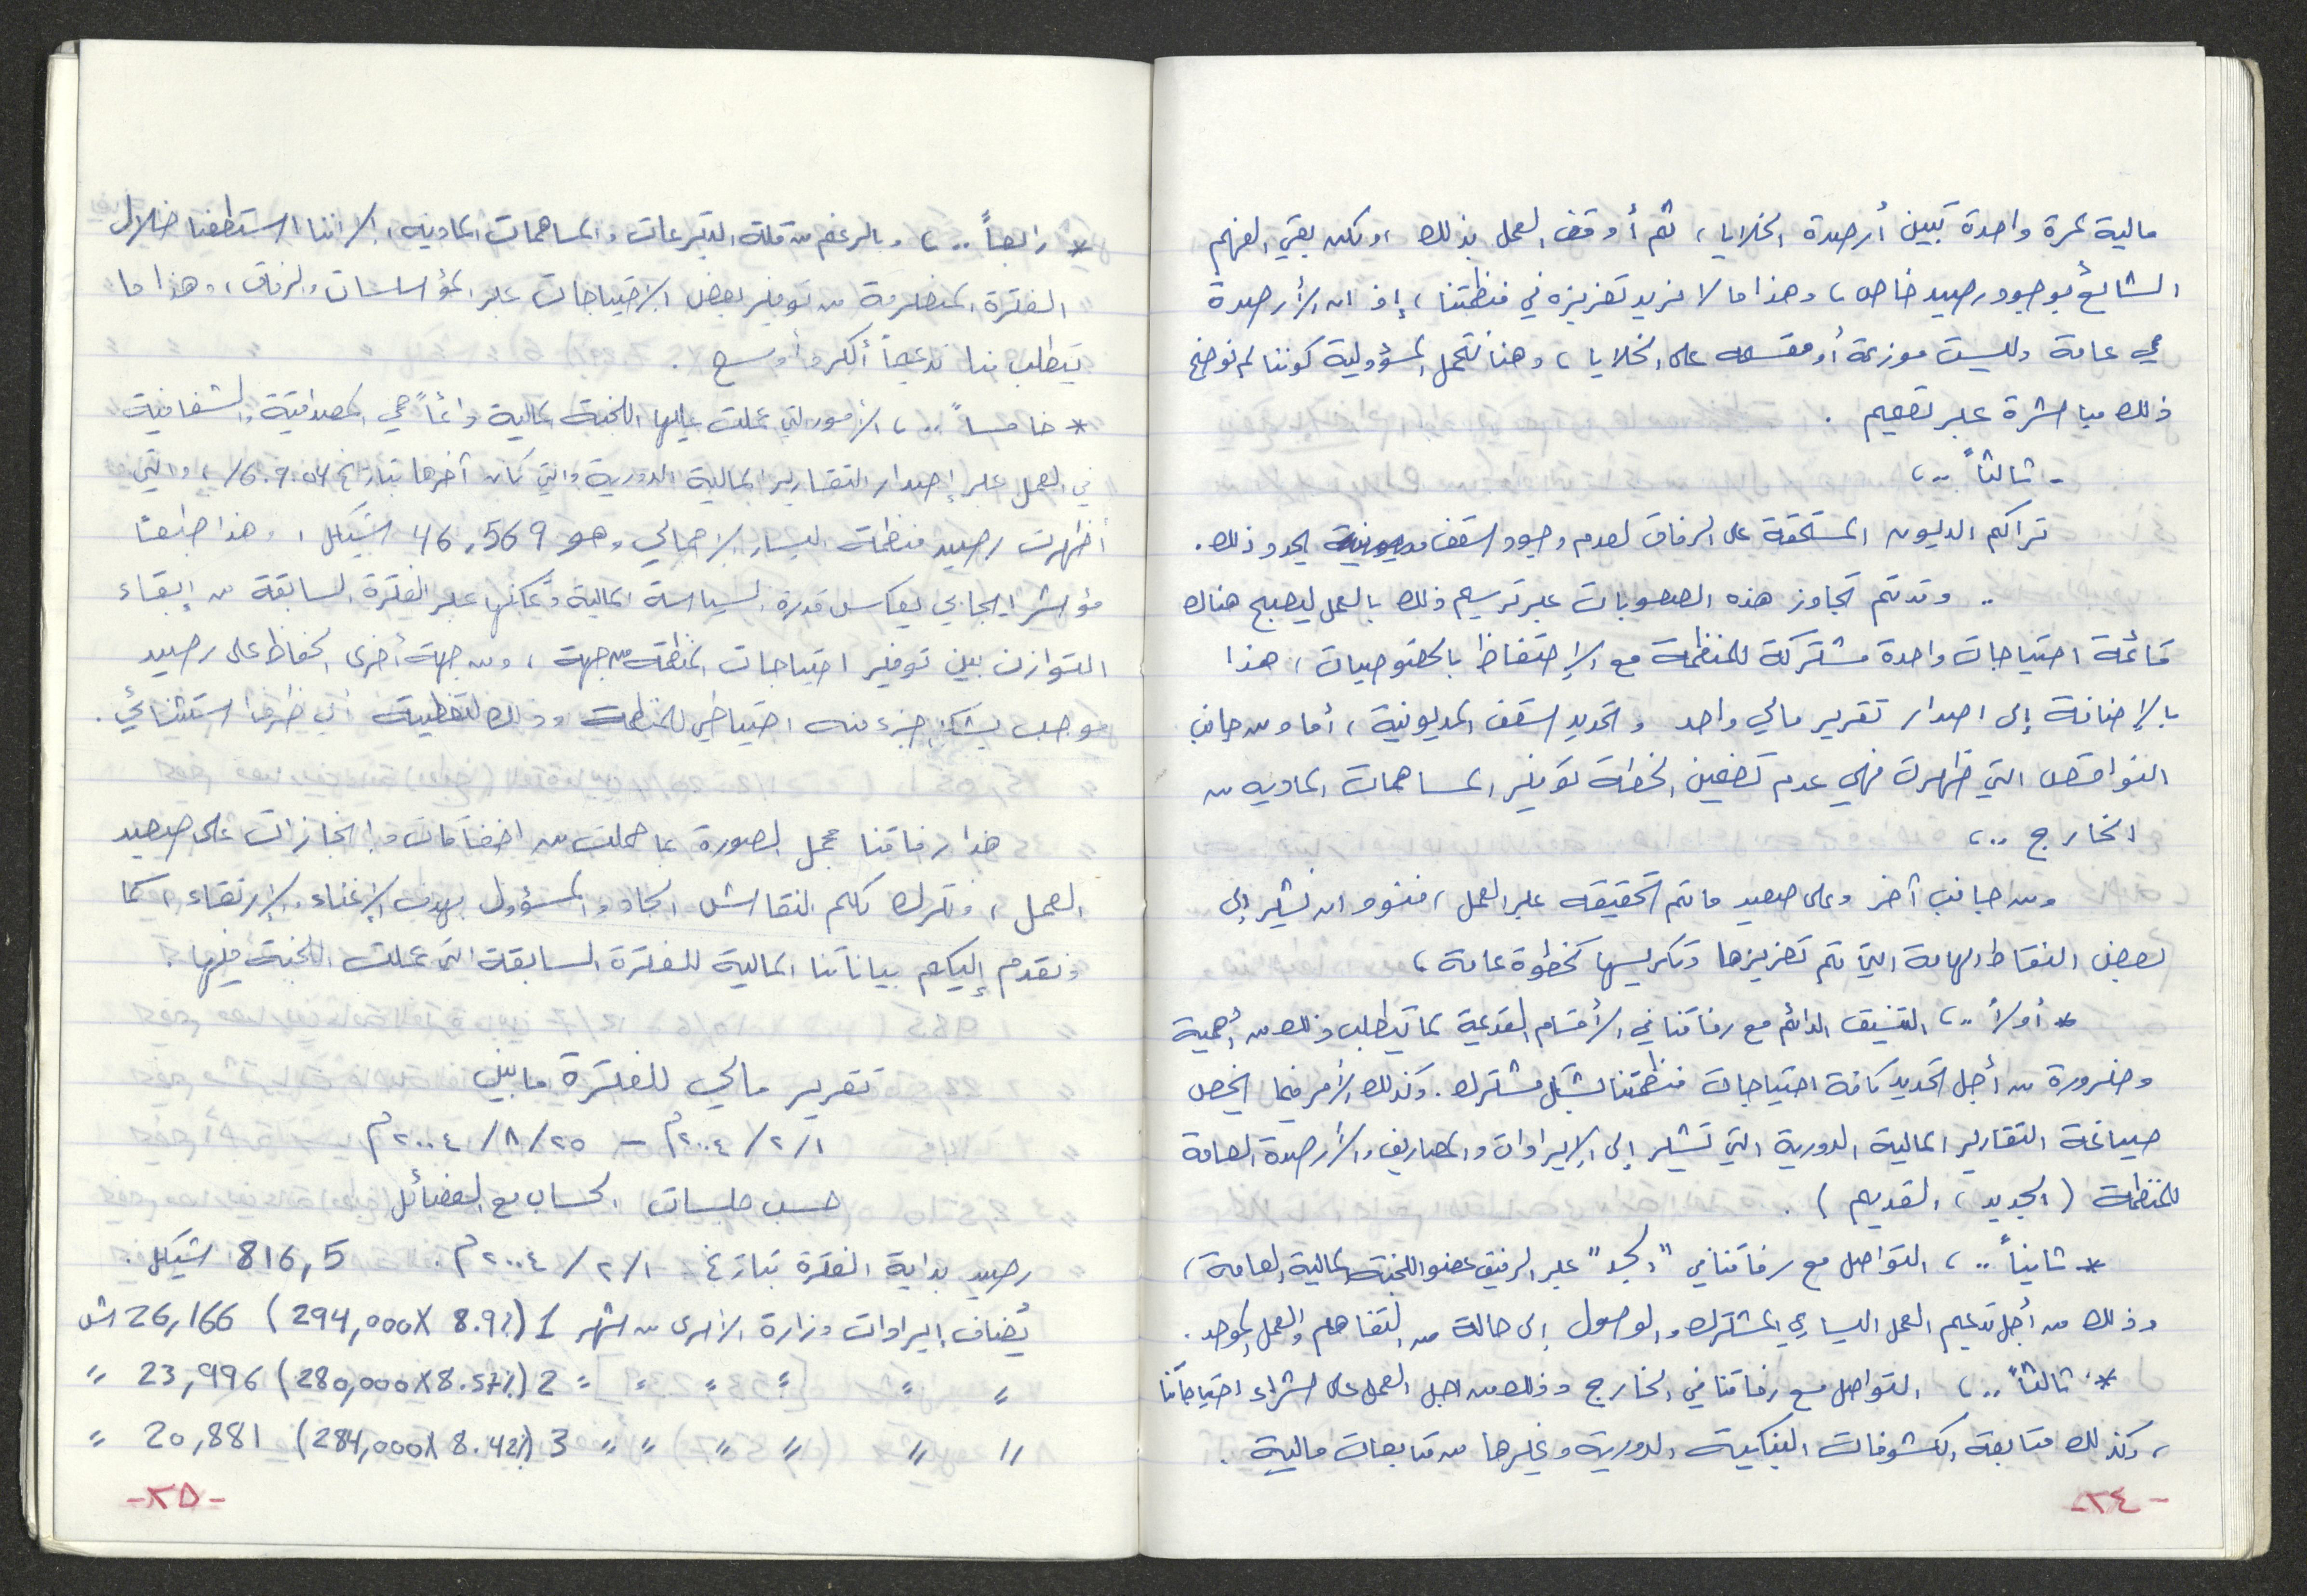 مالية لمرة واحدة تبين أرصدة الخلايا، ثم أوقف العمل بذلك، ولكن بقي الفهم
الشائع بوجود رصيد خاص، وهذا ما لا نريد تعزيزه في منظمتنا، إذ ان الأرصدة
هي عامة وليست موزعة أو مقسمه على الخلايا، وهنا نتحمل المسؤولية كوننا لم نوضح
ذلك مباشرة عبر تعميم .
- ثالثاً ..،
تراكم الديون المستحقة على الرفاق لعدم وجود سقف مديونية يحدد ذلك.
.. وقد تم تجاوز هذه الصعوبات عبر ترسيم ذلك بالعمل ليصبح هناك
قائمة احتياجات واحدة مشتركة للمنظمة مع الإحتفاظ بالخصوصيات، هذا
بالإضافة إلى اصدار تقرير مالي واحد وتحديد سقف المديونية، أما ومن جانب
النواقص التي ظهرت فهي عدم تضمين الخطة توفير المساهمات الماديه من
الخارج ..،
ومن جانب آخر وعلى صعيد ما تم تحقيقه عبر العمل، فنود ان نشير إلى
بعض النقاط الهامة التي تم تعزيزها وتكريسها كخطوة عامة،
* أولاً ..، التنسيق الدائم مع رفاقنا في الأقسام القديمة لما يتطلب ذلك من أهمية
وضرورة من أجل تحديد كافة احتياجات منظمتنا بشكل مشترك. وكذلك الأمر فيما يخص
صياغة التقارير المالية الدورية التي تشير إلى الإيرادات والمصاريف والأرصدة العامة
للمنظمة (الجديد، القديم) .
* ثانياً ..، التواصل مع رفاقنا في "الجد" عبر الرفيق عضو اللجنة المالية العامة،
وذلك من أجل تدعيم العمل اليساري المشترك والوصول إلى حالة من التفاهم والعمل الموحد.
* ثالثاً ..، التواصل مع رفاقنا في الخارج وذلك من اجل العمل على شراء احتياجاتنا
، وكذلك متابعة الكشوفات البنكية الدورية وغيرها من متابعات مالية .
-٢٤-
* رابعاً ..، وبالرغم من قلة التبرعات والمساهمات الماديه، إلا اننا استطعنا خلال
الفترة المنصرمة من توفير بعض الإحتياجات عبر المؤسسات والرفاق، وهذا ما
يتطلب منا تدعيماً أكبر وأوسع .
* خامساً ..، الأمور التي عملت عليها اللجنة المالية دائماً هي المصداقية والشفافية
في العمل عبر إصدار التقارير المالية الدورية والتي كان آخرها بتاريخ 6.9.04/، والتي
أظهرت رصيد منظمة اليسار الإجمالي وهو 46,569 شيكل، وهذا طبعاً
مؤشر ايجابي يعكس قدرة السياسة المالية وتمكنها عبر الفترة السابقة من إبقاء
التوازن بين توفير احتياجات المنظمة من جهة، ومن جهة أخرى الحفاظ على رصيد
موجب يشكل جزء منه احتياطي للمنظمة وذلك لتغطية أي ظرف استثنائي.
هذا رفاقنا مجمل الصورة بما حملت من اخفاقات وانجازات على صعيد
العمل، ونترك لكم النقاش الجاد والمسؤول بهدف الإغناء والإرتقاء، كما
ونقدم إليكم بياناتنا المالية للفترة السابقة التي عملت اللجنة فيها.
تقرير مالي للفترة ما بين
٢٠٠٤/٢/١م - ٢٠٠٤/٨/٢٥م
حسب جلسات الحساب مع الفصائل
رصيد بداية الفترة بتاريخ ٢٠٠٤/٢/١م . 816,5 شيكل.
يُضاف إيرادات وزارة الأسرى من شهر 1 (294,000X 8.9%) 26,166 ش
" " " " " " 2 (280,000X8.57%) 23,996 "
" " " " " " 3 (284,000X 8.42%) 20,881 "
-٢٥-